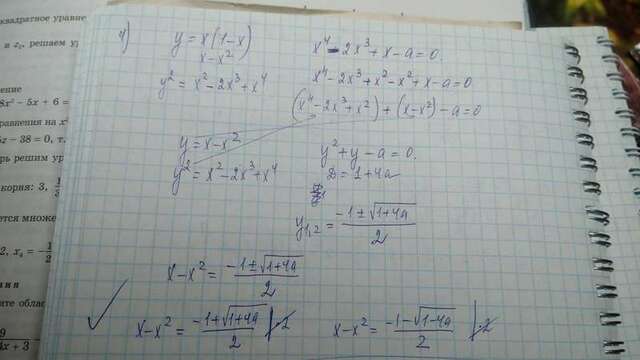 квадратное уравне
и z₂, решаем ур
ение
8x² − 5x + 6 =
равнения на x
5z − 38 = 0, т.
рь решим ур
корня: 3, 1/3
ется множе
2, x₄ = −1/2
ния
ите облас
9
4x + 3
4) y = x(1−x)
x−x²
y² = x² − 2x³ + x⁴
y = x−x²
y² = x² − 2x³ + x⁴
x⁴ − 2x³ + x − a = 0.
x⁴ − 2x³ + x² − x² + x − a = 0
(x⁴ − 2x³ + x²) + (x − x²) − a = 0
y² + y − a = 0.
D = 1+4a
y₁,₂ = (−1 ± √(1+4a))/2
x−x² = (−1 ± √(1+4a))/2
x−x² = (−1+√(1+4a))/2 |·2
x−x² = (−1−√(1−4a))/2 |·2